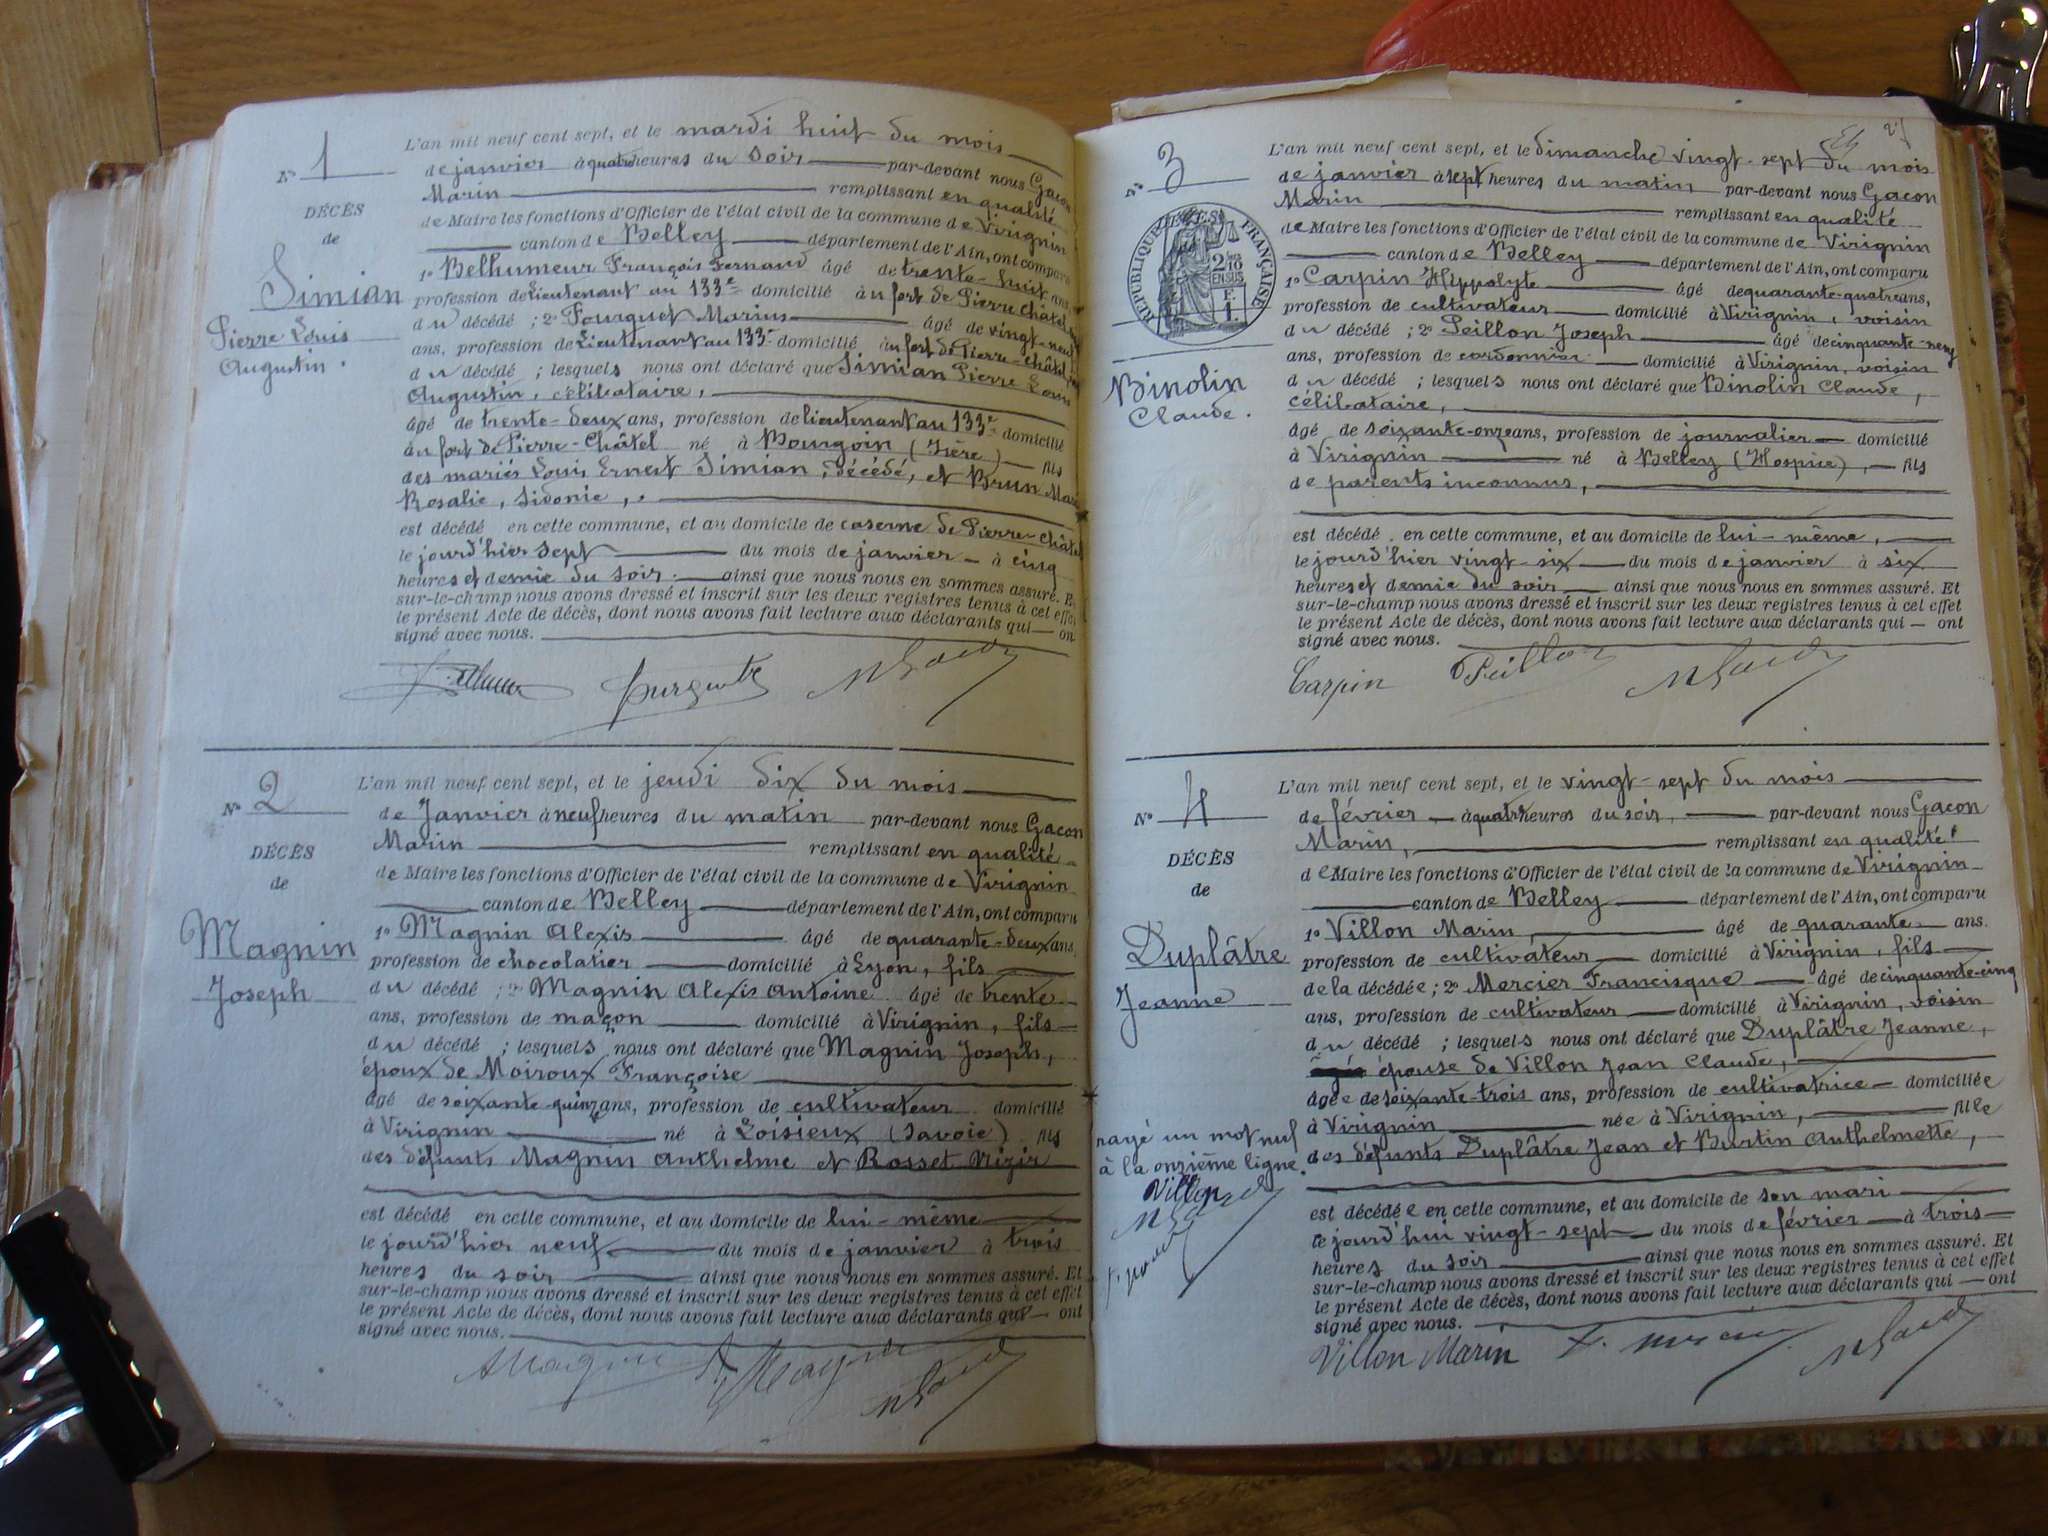 N° 1
DÉCÈS
de
Simian
Pierre Louis
Augustin.
L'an mil neuf cent sept, et le mardi huit du mois
de janvier à quatre heures du soir par-devant nous Gacon
Marin remplissant en qualité
de Maire les fonctions d'Officier de l'état civil de la commune de Virignin
canton de Belley département de l'Ain, ont comparu
1° Belhumeur François Fernand âgé de trente-huit ans
profession de lieutenant au 133e domicilié au fort de Pierre Châtel,
du décédé ; 2° Fourquet Marius âgé de vingt-neuf
ans, profession de Lieutenant au 133e domicilié au fort de Pierre-Châtel,
du décédé ; lesquels nous ont déclaré que Simian Pierre Louis
Augustin, célibataire,
âgé de trente-deux ans, profession de lieutenant au 133e domicilié
au fort de Pierre-Châtel né à Bourgoin (Isère) fils
des mariés Louis Ernest Simian, décédé, et Brun Marie
Rosalie, Sidonie,
est décédé en cette commune, et au domicile de caserne de Pierre-Châtel
le jourd'hier sept du mois de janvier à cinq
heures et demie du soir. ainsi que nous nous en sommes assuré. Et
sur-le-champ nous avons dressé et inscrit sur les deux registres tenus à cet effet
le présent Acte de décès, dont nous avons fait lecture aux déclarants qui ont
signé avec nous.
M Gacon
N° 2
DÉCÈS
de
Magnin
Joseph
L'an mil neuf cent sept, et le jeudi dix du mois
de Janvier à neuf heures du matin par-devant nous Gacon
Marin remplissant en qualité
de Maire les fonctions d'Officier de l'état civil de la commune de Virignin
canton de Belley département de l'Ain, ont comparu
1° Magnin Alexis âgé de quarante-deux ans,
profession de chocolatier domicilié à Lyon, fils
du décédé ; 2° Magnin Alexis Antoine âgé de trente
ans, profession de maçon domicilié à Virignin, fils
du décédé ; lesquels nous ont déclaré que Magnin Joseph,
époux de Moiroux Françoise
âgé de soixante-quinze ans, profession de cultivateur domicilié
à Virignin né à Loisieux (Savoie) fils
des défunts Magnin Anthelme et Rosset
est décédé en cette commune, et au domicile de lui-même
le jourd'hier neuf du mois de janvier à trois
heures du soir ainsi que nous nous en sommes assuré. Et
sur-le-champ nous avons dressé et inscrit sur les deux registres tenus à cet effet
le présent Acte de décès, dont nous avons fait lecture aux déclarants qui ont
signé avec nous.
A Magnin A Magnin M Gacon
27
N° 3
RÉPUBLIQUE FRANÇAISE
2/10 EN SUS
Binolin
Claude.
L'an mil neuf cent sept, et le dimanche vingt-sept du mois
de janvier à sept heures du matin par-devant nous Gacon
Marin remplissant en qualité
de Maire les fonctions d'Officier de l'état civil de la commune de Virignin
canton de Belley département de l'Ain, ont comparu
1° Carpin Hippolyte âgé de quarante-quatre ans,
profession de cultivateur domicilié à Virignin, voisin
du décédé ; 2° Peillon Joseph âgé de cinquante-neuf
ans, profession de cordonnier domicilié à Virignin, voisin
du décédé ; lesquels nous ont déclaré que Binolin Claude,
célibataire,
âgé de soixante-onze ans, profession de journalier domicilié
à Virignin né à Belley (Hospice), fils
de parents inconnus,
est décédé en cette commune, et au domicile de lui-même,
le jourd'hier vingt-six du mois de janvier à six
heures et demie du soir ainsi que nous nous en sommes assuré. Et
sur-le-champ nous avons dressé et inscrit sur les deux registres tenus à cet effet
le présent Acte de décès, dont nous avons fait lecture aux déclarants qui ont
signé avec nous.
Carpin Peillon M Gacon
N° 4
DÉCÈS
de
Duplâtre
Jeanne
rayé un mot nul
à la onzième ligne.
Villon
M Gacon
L'an mil neuf cent sept, et le vingt-sept du mois
de février à quatre heures du soir, par-devant nous Gacon
Marin, remplissant en qualité
de Maire les fonctions d'Officier de l'état civil de la commune de Virignin
canton de Belley département de l'Ain, ont comparu
1° Villon Marin, âgé de quarante ans.
profession de cultivateur domicilié à Virignin, fils
de la décédée ; 2° Mercier Francisque âgé de cinquante-cinq
ans, profession de cultivateur domicilié à Virignin, voisin
du décédé ; lesquels nous ont déclaré que Duplâtre Jeanne,
épouse de Villon Jean Claude,
âgée de soixante-trois ans, profession de cultivatrice domiciliée
à Virignin née à Virignin, fille
des défunts Duplâtre Jean et Burtin Anthelmette,
est décédée en cette commune, et au domicile de son mari
le jourd'hui vingt-sept du mois de février à trois
heures du soir ainsi que nous nous en sommes assuré. Et
sur-le-champ nous avons dressé et inscrit sur les deux registres tenus à cet effet
le présent Acte de décès, dont nous avons fait lecture aux déclarants qui ont
signé avec nous.
Villon Marin M Gacon